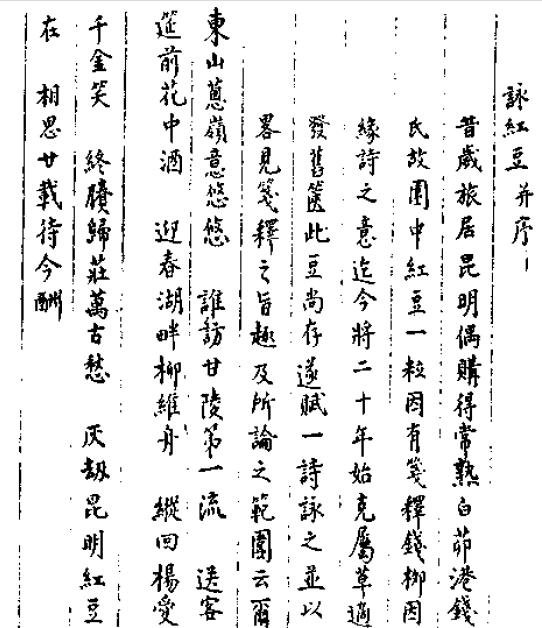 詠紅豆 并序
昔歲旅居昆明偶購得常熟白茆港錢
氏故園中紅豆一粒因有箋釋錢柳因
緣詩之意迄今將二十年始克屬草適
發舊篋此豆尚存遂賦一詩詠之並以
畧見箋釋之旨趣及所論之範圍云爾
東山蔥嶺意悠悠 誰訪甘陵第一流 送客
筵前花中酒 迎春湖畔柳維舟 縱回楊愛
千金笑 終賸歸莊萬古愁 灰劫昆明紅豆
在 相思廿載待今酬